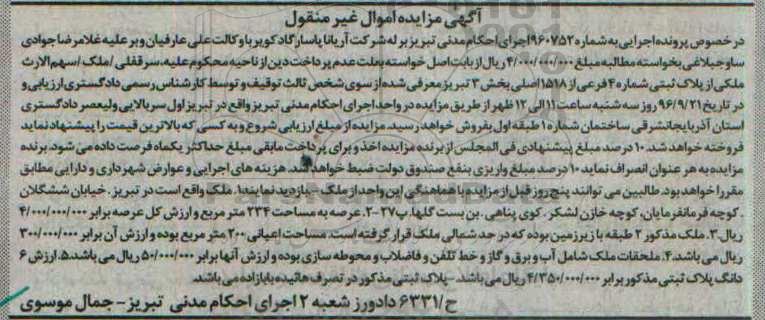 آگهی مزایده اموال غیر منقول
در خصوص پرونده اجرایی به شماره ۹۶۰۷۵۲ اجرای احکام مدنی تبریز بر له شرکت آریانا پاسارگاد کویر با وکالت علی عارفیان و بر علیه غلامرضا جوادی
ساوجبلاغی بخواسته مطالبه مبلغ ۴/۰۰۰/۰۰۰/۰۰۰ ریال از بابت اصل خواسته بعلت عدم پرداخت دین از ناحیه محکوم علیه، سرقفلی / ملک / سهم الارث
ملکی از پلاک ثبتی شماره ۴ فرعی از ۱۵۱۸ اصلی بخش ۳ تبریز معرفی شده از سوی شخص ثالث توقیف و توسط کارشناس رسمی دادگستری ارزیابی و
در تاریخ ۹۶/۹/۲۱ روز سه شنبه ساعت ۱۱ الی ۱۲ ظهر از طریق مزایده در واحد اجرای احکام مدنی تبریز واقع در تبریز اول سربالایی ولیعصر دادگستری
استان آذربایجانشرقی ساختمان شماره ۱ طبقه اول بفروش خواهد رسید. مزایده از مبلغ ارزیابی شروع و به کسی که بالاترین قیمت را پیشنهاد نماید
فروخته خواهد شد. ۱۰ درصد مبلغ پیشنهادی فی المجلس از برنده مزایده اخذ و برای پرداخت مابقی مبلغ حداکثر یکماه فرصت داده می شود. برنده
مزایده به هر عنوان انصراف نماید ۱۰ درصد مبلغ واریزی بنفع صندوق دولت ضبط خواهد شد. هزینه های اجرایی و عوارض شهرداری و دارایی مطابق
مقررا خواهد بود. طالبین می توانند پنج روز قبل از مزایده با هماهنگی این واحد از ملک بازدید نمایند ۱. ملک واقع است در تبریز. خیابان ششگلان
. کوچه فرمانفرمایان، کوچه خازن لشکر. کوی پناهی. بن بست گلها. پ ۲۷-۲. عرصه به مساحت ۲۳۴ متر مربع و ارزش کل عرصه برابر ۴/۰۰۰/۰۰۰/۰۰۰
ریال ۳. ملک مذکور ۲ طبقه با زیرزمین بوده که در حد شمالی ملک قرار گرفته است. مساحت اعیانی ۲۰۰ متر مربع بوده و ارزش آن برابر ۳۰۰/۰۰۰/۰۰۰
ریال می باشد. ۴. ملحقات ملک شامل آب و برق و گاز و خط تلفن و فاضلاب و محوطه سازی بوده و ارزش آنها برابر ۵۰/۰۰۰/۰۰۰ ریال می باشد. ۵. ارزش ۶
دانگ پلاک ثبتی مذکور برابر ۴/۳۵۰/۰۰۰/۰۰۰ ریال می باشد. پلاک ثبتی مذکور در تصرف می باشد.
ح/۶۳۳۱ دادورز شعبه ۲ اجرای احکام مدنی تبریز - جمال موسوی